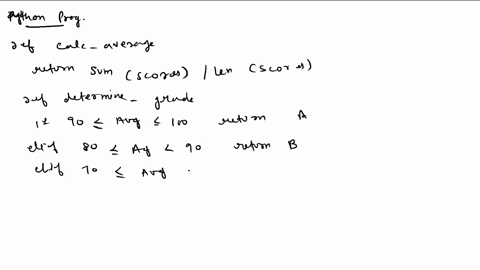 Python Prog.
def calc_average
return sum (scores) / len (scores)
def determine_ grade
if 90 ≤ Avg ≤ 100 return A
elif 80 ≤ Ag < 90 return B
elif 70 ≤ Avg .